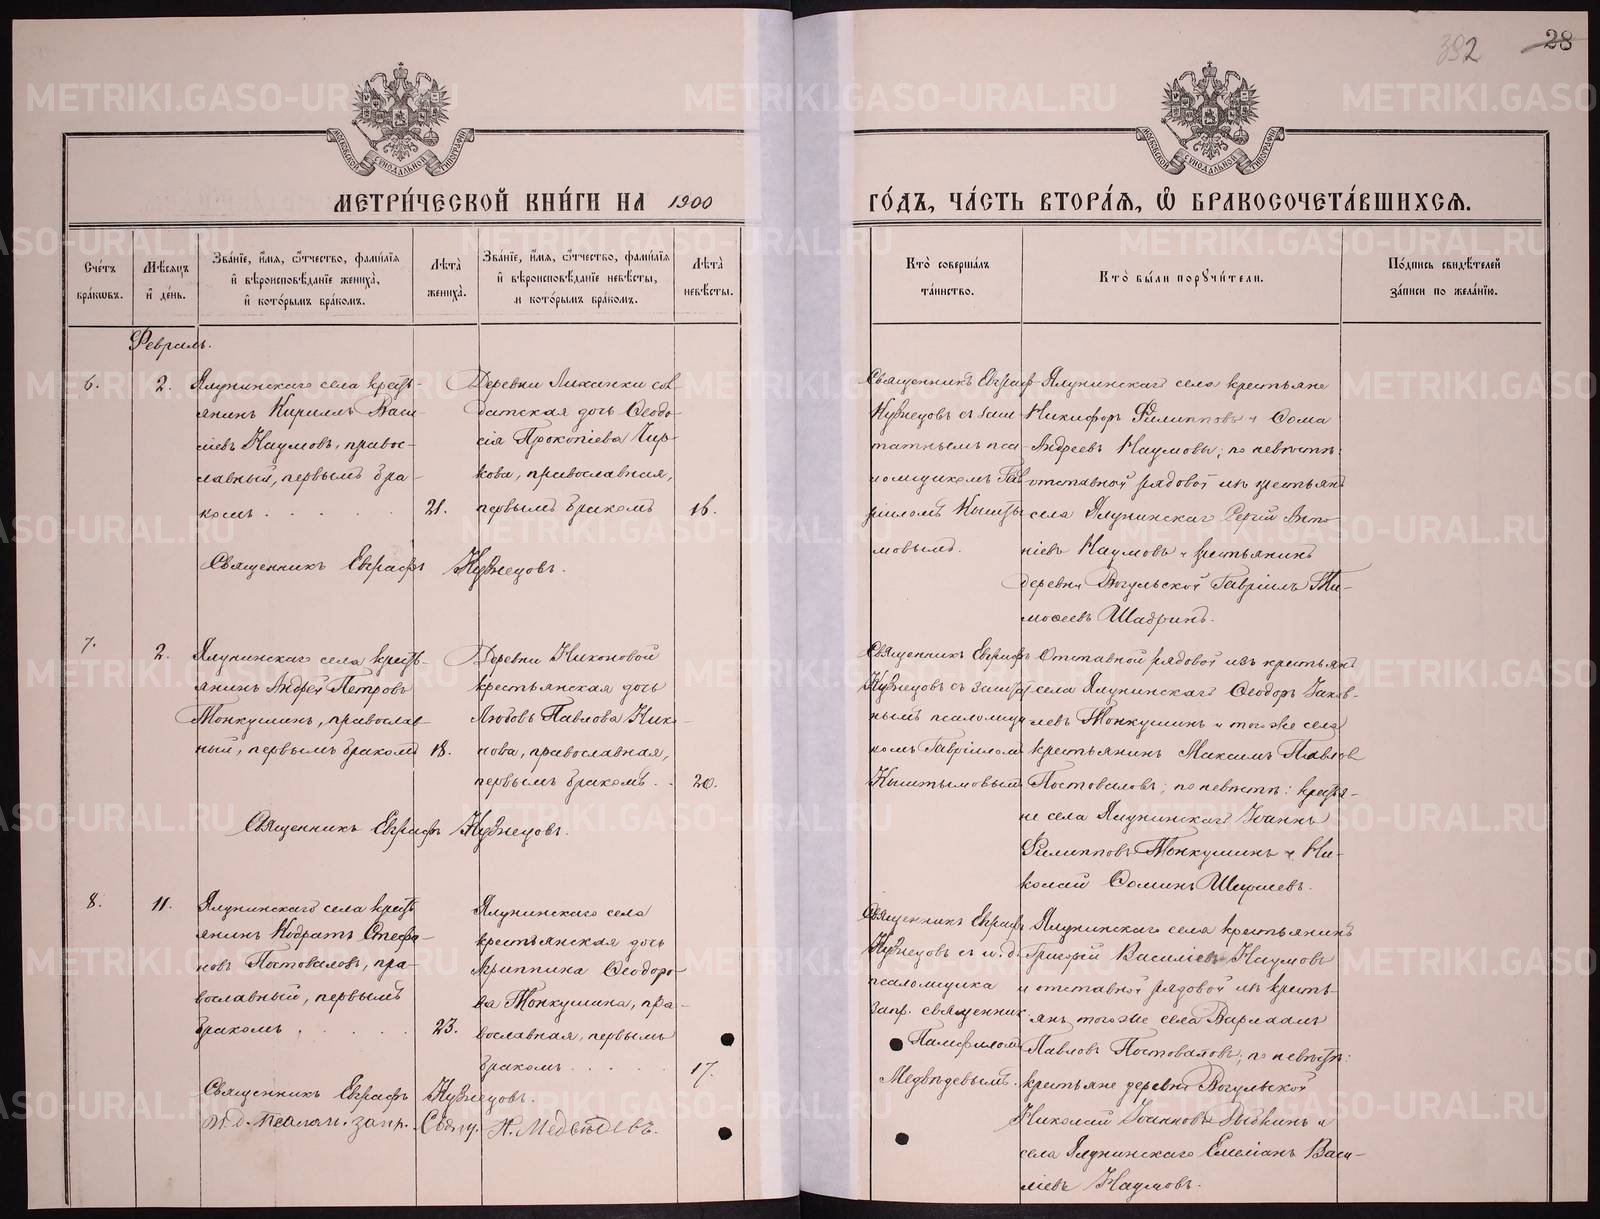 382 28
МОСКОВСКОЙ СѴНОДАЛЬНОЙ ТИПОГРАФІИ
МОСКОВСКОЙ СѴНОДАЛЬНОЙ ТИПОГРАФІИ
МЕТРИ́ЧЕСКОЙ КНИ́ГИ НА 1900
ГО́ДЪ, ЧА́СТЬ ВТОРА́Я, Ѽ БРАКОСОЧЕТА́ВШИХСЯ.
Сче́тъ бра́кѡвъ.
Мѣ́сяцъ и҆ де́нь.
Зва́нїе, и҆́мя, ѻ҆́тчество, фами́лїя
и҆ вѣроисповѣ́данїе жениха̀,
и҆ кото́рымъ бра́комъ.
Лѣ́та̀ жениха̀.
Зва́нїе, и҆́мя, ѻ҆́тчество, фами́лїя
и҆ вѣроисповѣ́данїе невѣ́сты,
и҆ кото́рымъ бра́комъ.
Лѣ́та̀ невѣ́сты.
Кто̀ соверша́лъ
та́инство.
Кто̀ бы́ли порꙋчи́тели.
По́дпись свидѣ́телей
за́писи по жела́нїю.
Февраль.
6.
2.
Ялунинскаго села кресть-
янинъ Кириллъ Васи-
ліевъ Наумовъ, правос-
лавный, первымъ бра-
комъ . . . . . .
21.
Деревни Лиханки сол-
датская дочь Ѳеодо-
сія Прокопіева Чир-
кова, православная,
первымъ бракомъ
16.
Священникъ Евграфъ
Кузнецовъ съ заш-
татнымъ пса-
ломщикомъ Гав-
ріиломъ Кышты-
мовымъ.
Ялунинскаго села крестьяне
Никифоръ Филипповъ и Ѳома
Андреевъ Наумовы; по невѣстѣ:
отставной рядовой изъ крестьянъ
села Ялунинскаго Сергій Анто-
ніевъ Наумовъ и крестьянинъ
деревни Вогульской Гавріилъ Ти-
моѳеевъ Шадринъ.
Священникъ Евграфъ Кузнецовъ.
7.
2.
Ялунинскаго села кресть-
янинъ Андрей Петровъ
Тонкушинъ, православ-
ный, первымъ бракомъ
18.
Деревни Никоновой
крестьянская дочь
Любовь Павлова Нико-
нова, православная,
первымъ бракомъ . .
20.
Священникъ Евграфъ
Кузнецовъ съ зашта-
нымъ псаломщи-
комъ Гавріиломъ
Кыштымовымъ
Отставной рядовой изъ крестьянъ
села Ялунинскаго Ѳеодоръ Яков-
левъ Тонкушинъ и того же села
крестьянинъ Максимъ Павлов
Постоваловъ; по невѣстѣ: крестья-
не села Ялунинскаго Іоаннъ
Филипповъ Тонкушинъ и Ни-
колай Ѳоминъ
Священникъ Евграфъ Кузнецовъ.
8.
11.
Ялунинскаго села кресть-
янинъ Кодратъ Стефа-
новъ Постоваловъ, пра-
вославный, первымъ
бракомъ . . . . .
23.
Ялунинскаго села
крестьянская дочь
Агриппина Ѳеодоро-
ва Тонкушина, пра-
вославная, первымъ
бракомъ . . . . .
17.
Священникъ Евграфъ
Кузнецовъ съ и. д.
псаломщика
запр. священник.
Памфиломъ
Медвѣдевымъ.
Ялунинскаго села крестьянинъ
Григорій Василіевъ Наумовъ
и отставной рядовой изъ кресть-
янъ того же села Варлаамъ
Павловъ Постоваловъ; по невѣстѣ:
крестьяне деревни Вогульской
Николай Іоанновъ Рыбкинъ и
села Ялунинскаго Емеліанъ Васи-
ліевъ Наумовъ.
Священникъ Евграфъ Кузнецовъ.
И. д. Псалом. запр. Свящ. П. Медвѣдевъ.
METRIKI.GASO-URAL.RU